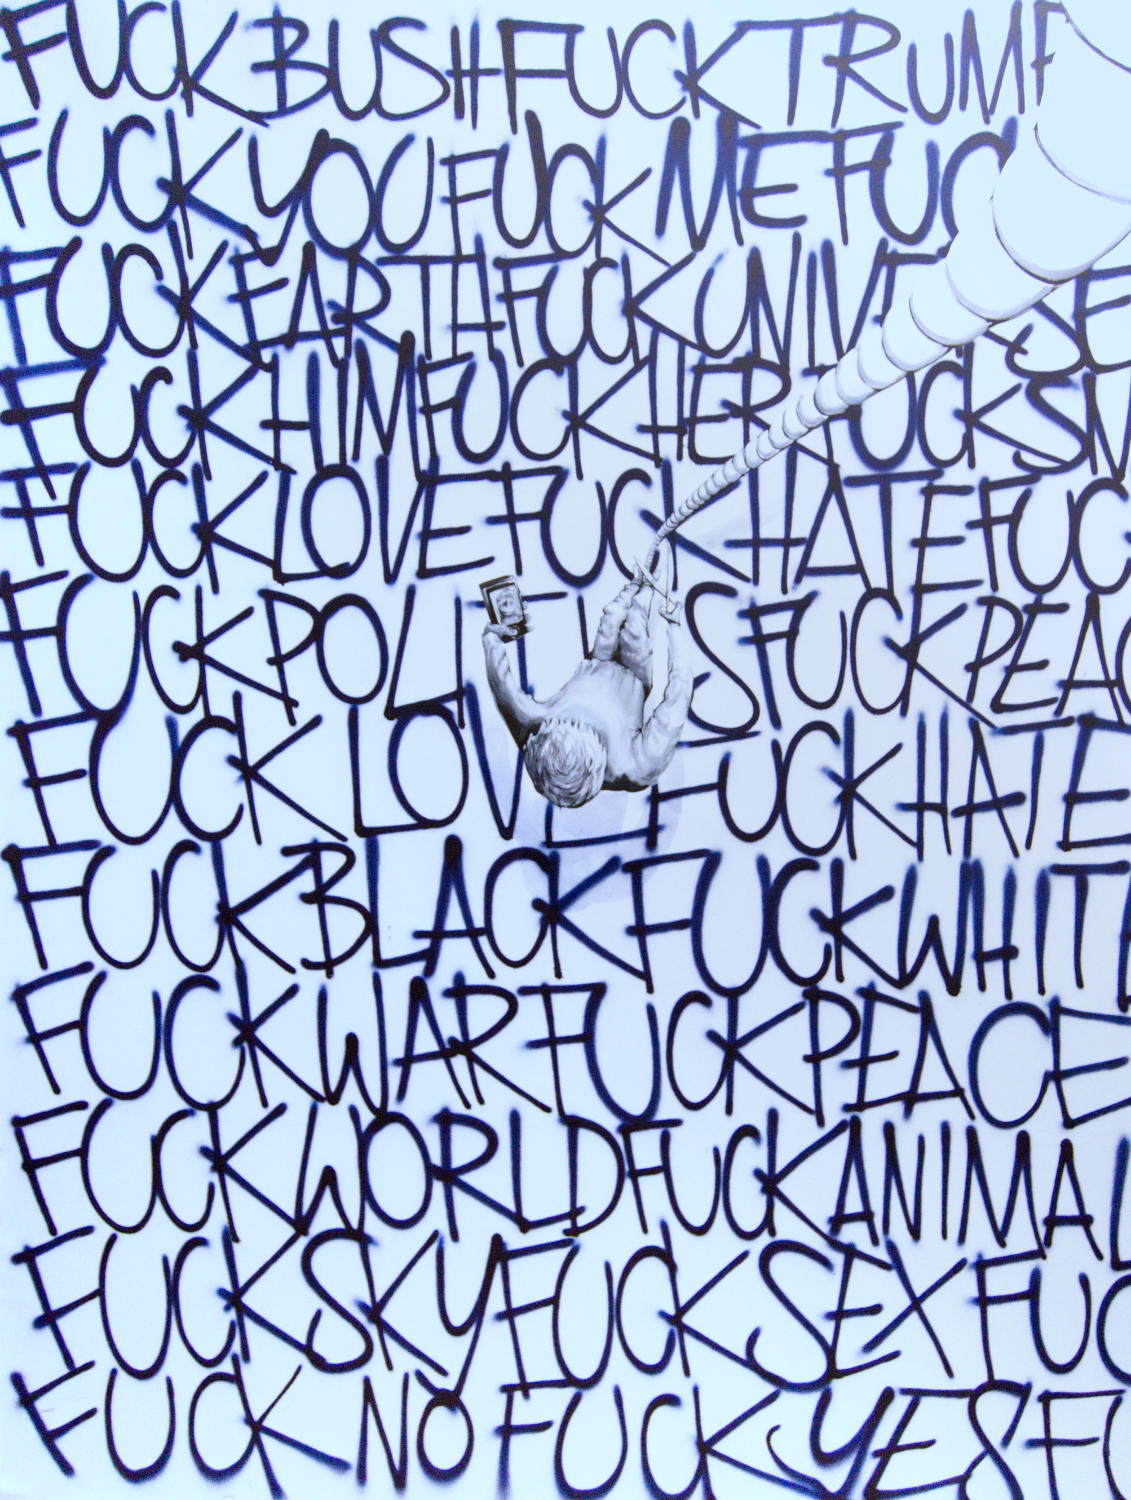 FUCK BUSH FUCK TRUMP
FUCK YOU FUCK ME FUC
FUCK EARTH FUCK UNIVERSE
FUCK HIM FUCK HER FUCK SM
FUCK LOVE FUCK HATE FUC
FUCK POLITICS FUCK PEAC
FUCK LOVE FUCK HATE
FUCK BLACK FUCK WHITE
FUCK WAR FUCK PEACE
FUCK WORLD FUCK ANIMAL
FUCK SKY FUCK SEX FUC
FUCK NO FUCK YES FU